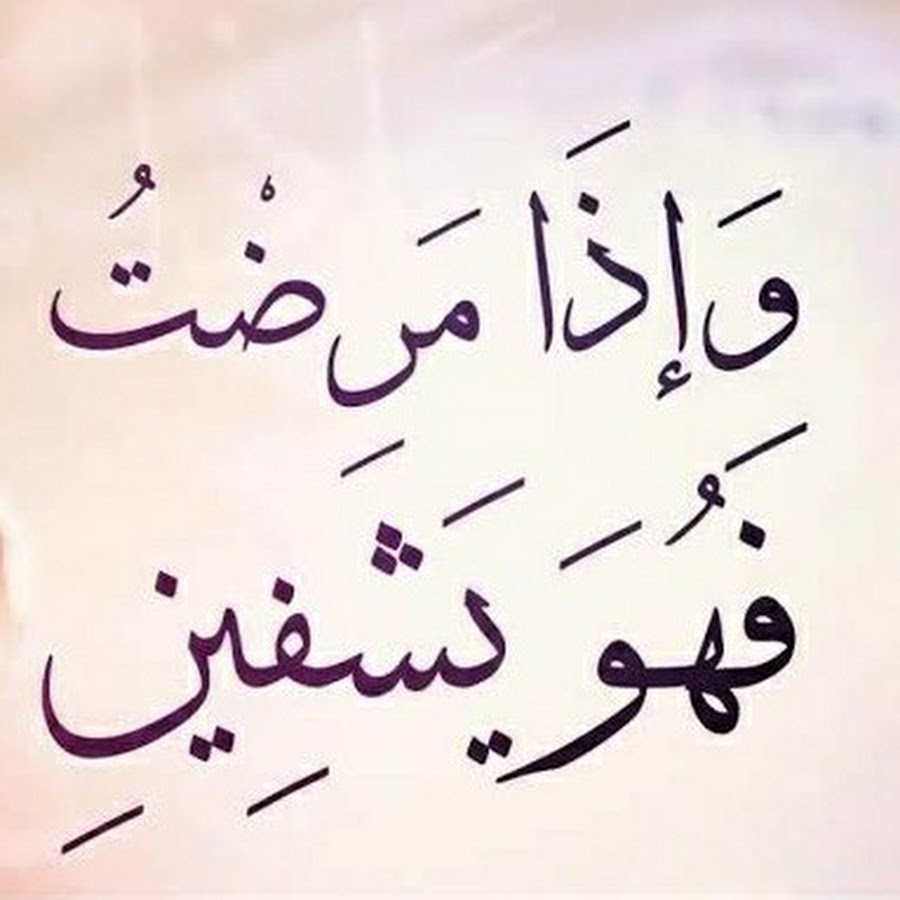 وَإِذَا مَرِضْتُ
فَهُوَ يَشفِينِ